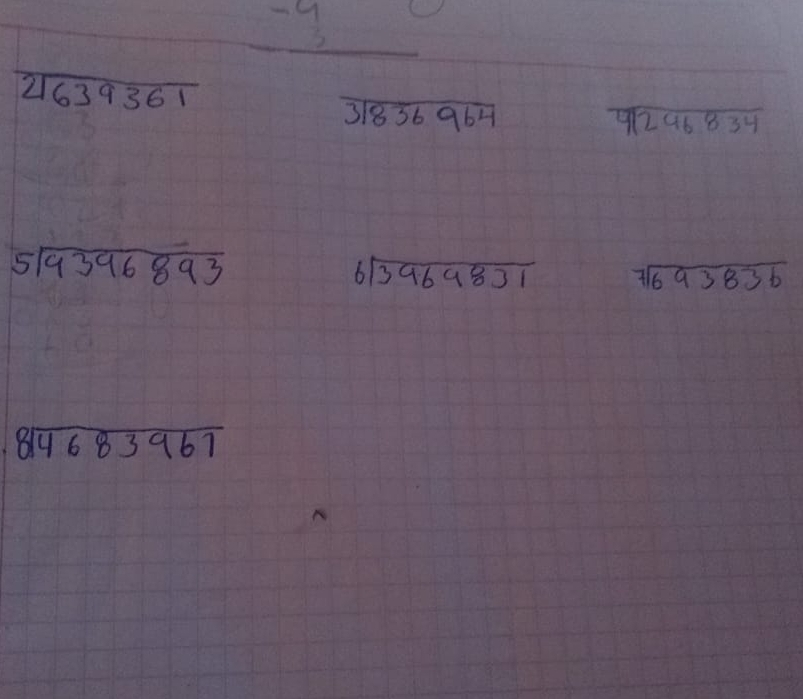 -9
3
2√639361
3√836964
4√296834
5√9396893
6√3969831
7√693836
8√4683961